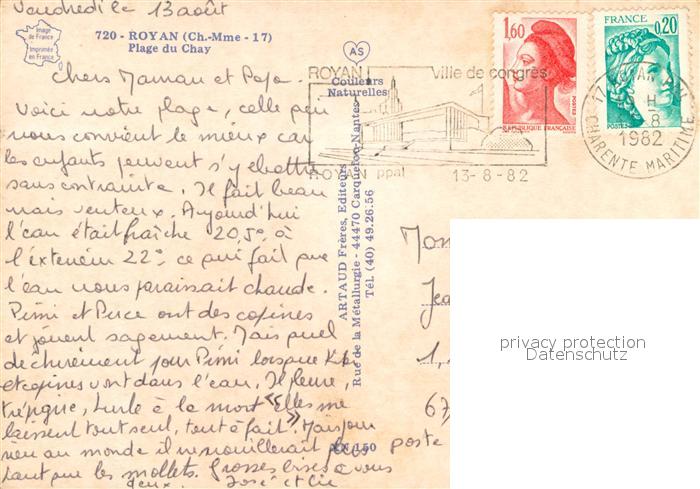 Vendredi le 13 août
Image de France
Imprimée en France
720 - ROYAN (Ch.-Mme - 17)
Plage du Chay
AS
Couleurs Naturelles
1,60
REPUBLIQUE FRANÇAISE
POSTES
FRANCE
0,20
POSTES
ROYAN ville de congrès
ROYAN ppal 13-8-82
17 ROYAN
H
8
1982
CHARENTE MARITIME
Chers Maman et Papa.
Voici notre plage, celle qui
nous convient le mieux car
les enfants peuvent s'y ébattre
sans contrainte. Il fait beau
mais venteux. Aujourd'hui
l'eau était fraîche 20,5° à
l'extérieur 22°, ce qui fait que
l'eau nous paraissait chaude.
Pimi et Puce ont des copines
et jouent sagement. Mais quel
déchirement pour Pimi lorsque
et copines vont dans l'eau. Il pleure,
trépigne, hurle à la mort "elles me
laissent tout seul, tout à fait". Mais pour
rien au monde il ne mouillerait plus
haut que les mollets. Grosses bises à vous
deux. José et Cie
ARTAUD Frères, Editeurs
Rue de la Métallurgie - 44470 Carquefou-Nantes
Tél. (40) 49.26.56
150
1,
67
poste
privacy protection
Datenschutz